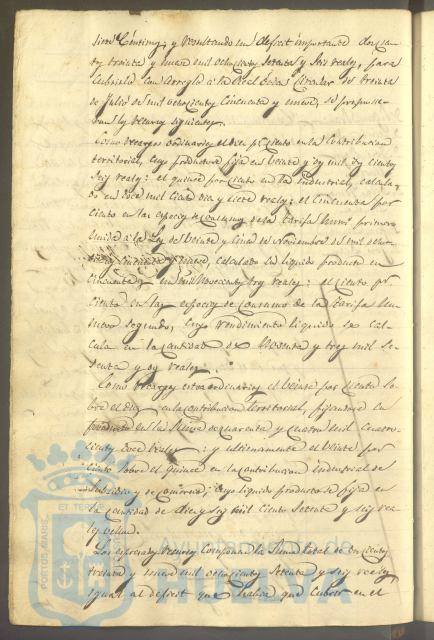 siete Céntimos, y resultando un deficit importante doscien
ty treinta y nueve mil ochocientos setenta y seis reales, para
cubrirlo con arreglo a la Real orden Circular de treinta
de Julio de mil ochocientos Cincuenta y nueve, se propusie
ron los recursos siguientes.
Como recargos ordinarios el diez pr Ciento en la Contribucion
territorial, cuyo producto se fija en veinte y dos mil dos cientos
seis reales: el quince por ciento en la industrial, calcula
do en doce mil ciento diez y siete reales: el cincuenta por
ciento en las especies de consumo de la tarifa num.º primero
unida a la Ley de veinte y Cinco de Noviembre de mil ocho
calculado su liquido producto en
cincuenta y un mil novecientos tres reales: el Ciento pr
Ciento en las especies de Consumo de la tarifa nu
mero segundo, cuyo rendimiento liquido se cal
cula en la cantidad de noventa y tres mil se
senta y dos reales.
Como recargos extraordinarios el veinte por ciento so
bre el diez en la contribucion territorial, fijandose su
producto en la suma de cuarenta y cuatro mil cuatro
cientos doce reales: y ultimamente el veinte por
ciento sobre el quince en la contribucion industrial de
subsidio y de comercio, cuyo liquido producto se fija en
la cantidad de diez y seis mil ciento setenta y seis rea
les vellon.
Los expresados recursos componen la suma total de doscientos
treinta y nueve mil ochocientos setenta y seis reales
igual al deficit que habia que cubrir en el
PORTUS MARIS
ET TERRAE
Ayuntamiento de
HUELVA